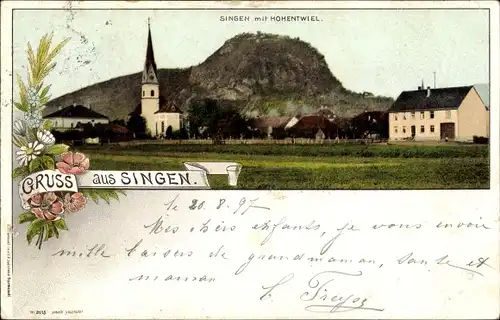 SINGEN mit HOHENTWIEL.
GRUSS aus SINGEN.
le 20.8.97
Mes chers enfants, je vous envoie
mille baisers de grandmaman, tante et
maman